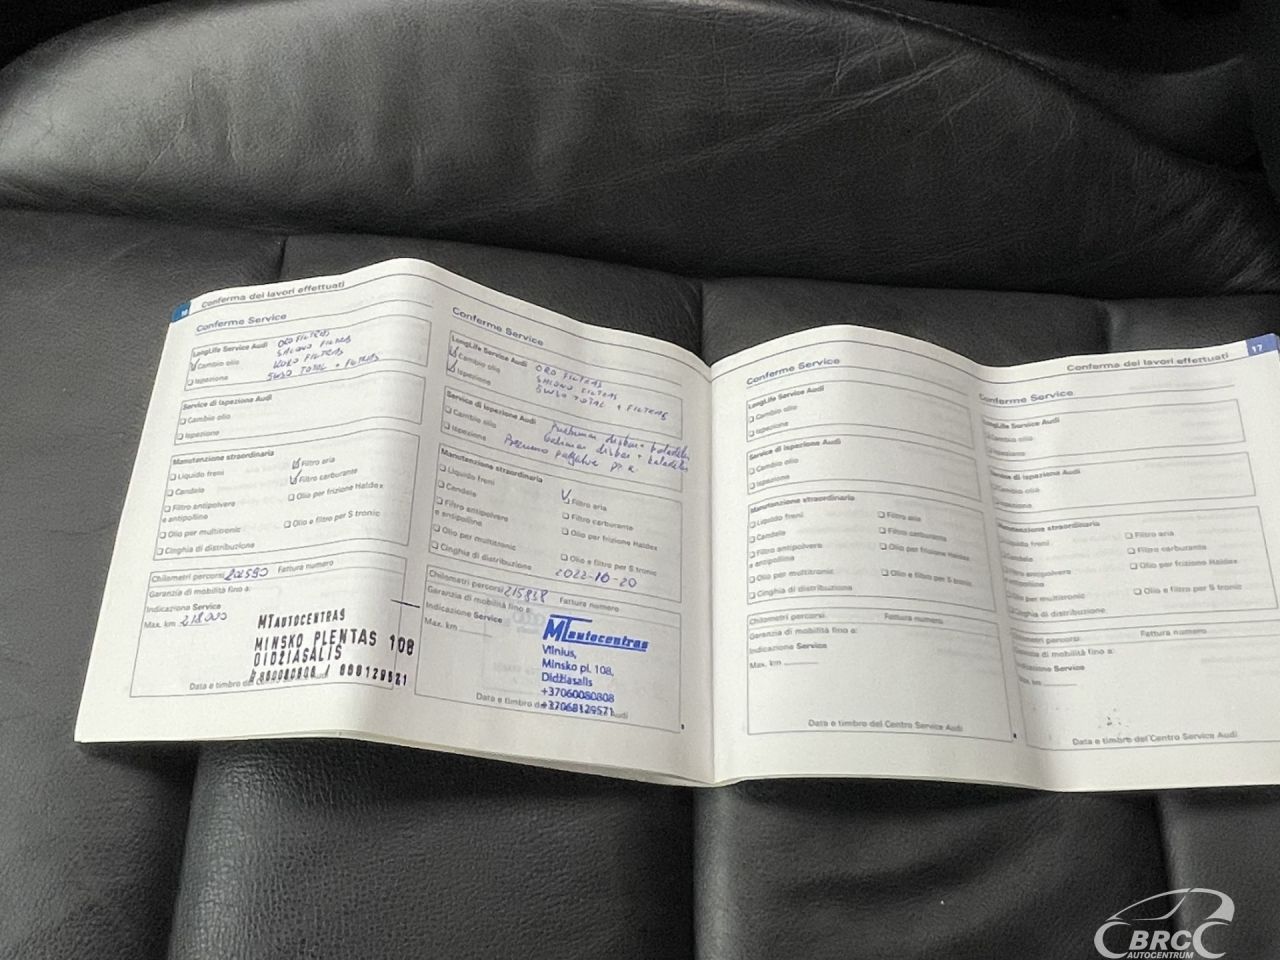 Conferma dei lavori effettuati
Conferme Service
LongLife Service Audi
ORO FILTRAS
Cambio olio
SALONO FILTRAS
Ispezione
KURO FILTRAS
5W30 TOTAL + FILTRAS
Service di ispezione Audi
Cambio olio
Ispezione
Manutenzione straordinaria
Liquido freni
Filtro aria
Candele
Filtro carburante
Filtro antipolvere
e antipolline
Olio per frizione Haldex
Olio per multitronic
Olio e filtro per S tronic
Cinghia di distribuzione
Chilometri percorsi 202590 Fattura numero
Garanzia di mobilità fino a:
Indicazione Service
Max. km 218000
MTAUTOCENTRAS
MINSKO PLENTAS 108
DIDŽIASALIS
Data e timbro del Centro Service Audi
Conferme Service
LongLife Service Audi
ORO FILTRAS
Cambio olio
SALONO FILTRAS
Ispezione
5W30 TOTAL + FILTRAS
Service di ispezione Audi
Cambio olio
Ispezione
diskai + kaladėlės
diskai + kaladėlės
Manutenzione straordinaria
Liquido freni
Filtro aria
Candele
Filtro carburante
Filtro antipolvere
e antipolline
Olio per frizione Haldex
Olio per multitronic
Olio e filtro per S tronic
Cinghia di distribuzione
2022-10-20
Chilometri percorsi 215838 Fattura numero
Garanzia di mobilità fino a:
Indicazione Service
Max. km
MTautocentras
Vilnius,
Minsko pl. 108,
Didžiasalis
+37060080808
+37068129571
Data e timbro del Centro Service Audi
Conferme Service
LongLife Service Audi
Cambio olio
Ispezione
Service di ispezione Audi
Cambio olio
Ispezione
Manutenzione straordinaria
Liquido freni
Filtro aria
Candele
Filtro carburante
Filtro antipolvere
e antipolline
Olio per frizione Haldex
Olio per multitronic
Olio e filtro per S tronic
Cinghia di distribuzione
Chilometri percorsi Fattura numero
Garanzia di mobilità fino a:
Indicazione Service
Max. km
Data e timbro del Centro Service Audi
Conferma dei lavori effettuati 17
Conferme Service
LongLife Service Audi
Cambio olio
Ispezione
Service di ispezione Audi
Cambio olio
Ispezione
Manutenzione straordinaria
Liquido freni
Filtro aria
Candele
Filtro carburante
Filtro antipolvere
e antipolline
Olio per frizione Haldex
Olio per multitronic
Olio e filtro per S tronic
Cinghia di distribuzione
Chilometri percorsi Fattura numero
Garanzia di mobilità fino a:
Indicazione Service
Max. km
Data e timbro del Centro Service Audi
BRC
AUTOCENTRUM